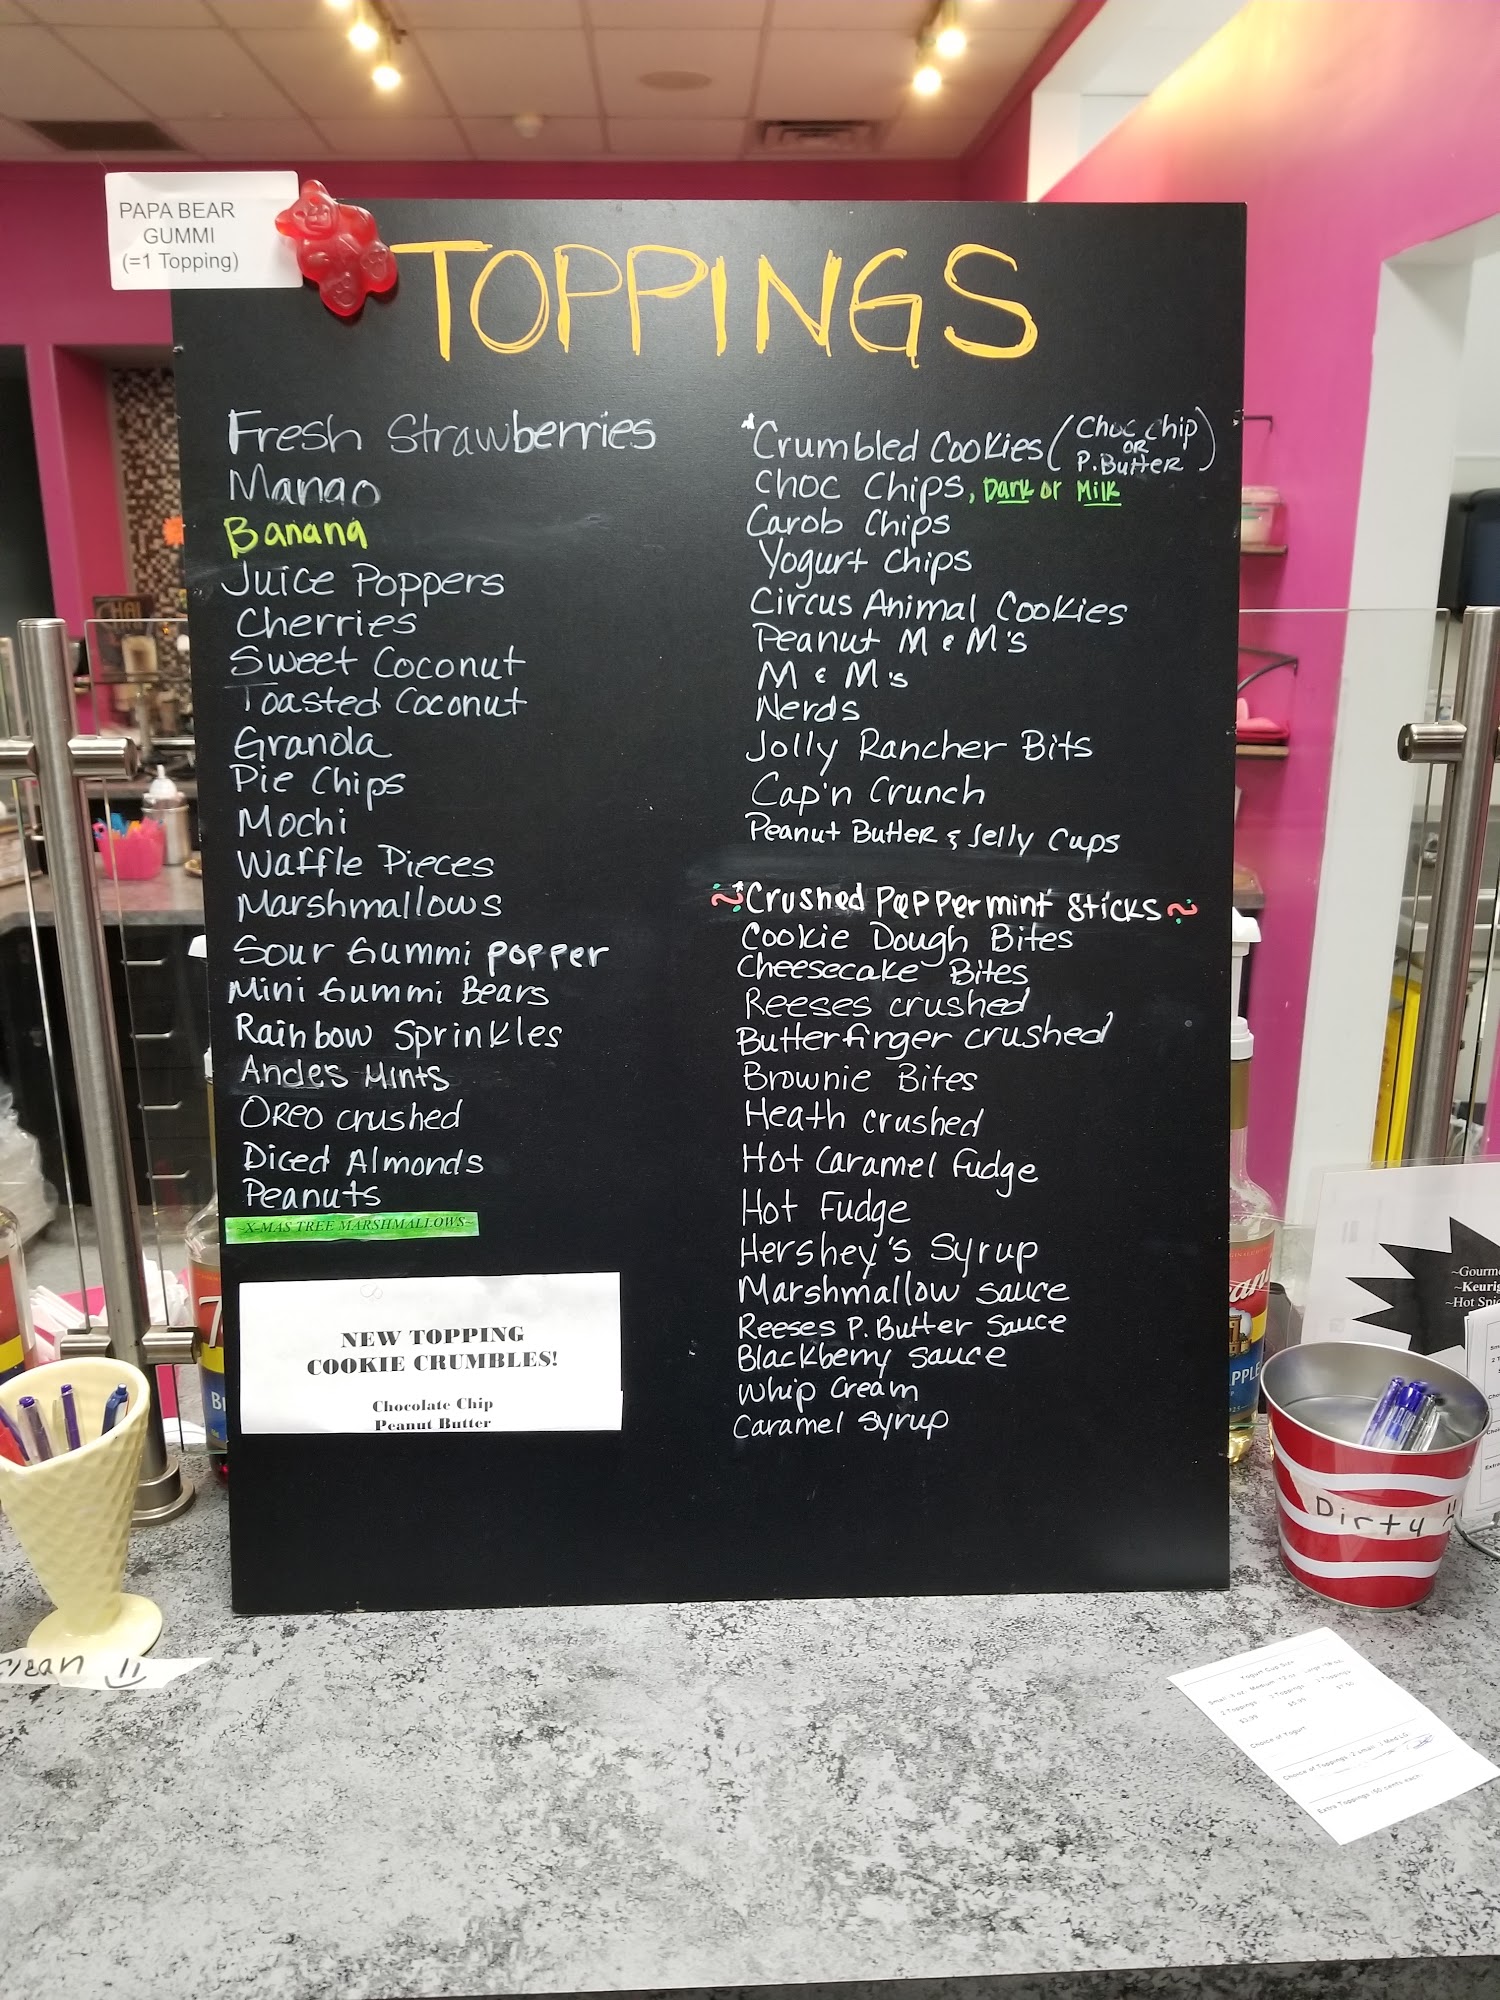 PAPA BEAR
GUMMI
(=1 Topping)
TOPPINGS
Fresh Strawberries
Mango
Banana
Juice Poppers
Cherries
Sweet Coconut
Toasted Coconut
Granola
Pie Chips
Mochi
Waffle Pieces
Marshmallows
Sour Gummi Popper
Mini Gummi Bears
Rainbow Sprinkles
Andes Mints
Oreo crushed
Diced Almonds
Peanuts
~X-MAS TREE MARSHMALLOWS~
NEW TOPPING
COOKIE CRUMBLES!
Chocolate Chip
Peanut Butter
*Crumbled Cookies (Choc chip OR P.Butter)
Choc Chips, Dark or Milk
Carob Chips
Yogurt Chips
Circus Animal Cookies
Peanut M & M's
M & M's
Nerds
Jolly Rancher Bits
Cap'n Crunch
Peanut Butter & Jelly Cups
~*Crushed Peppermint Sticks~
Cookie Dough Bites
Cheesecake Bites
Reeses crushed
Butterfinger crushed
Brownie Bites
Heath crushed
Hot Caramel Fudge
Hot Fudge
Hershey's Syrup
Marshmallow sauce
Reeses P. Butter Sauce
Blackberry sauce
Whip Cream
Caramel Syrup
CHAI
~Gourme
~Keurig
~Hot Spic
APPLE
Dirty
Clean
Yogurt Cup Size
2 Toppings
Choice of Yogurt
Choice of Toppings 2 small
Extra Toppings .50 cents each